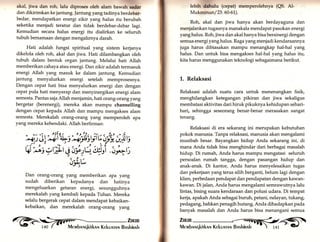 akal, jiwa dan roh, lalu diproses oleh alam bawah sadar
dan dikirimkan ke jantung. Jantung yang tadinya berdebar-
bedar, mendapatkan energi zikir yang halus itu berubah
seketika menjadi teratur dan tidak berdebar-debar lagi.
Kemudian secara halus energi itu dialirkan ke seluruh
tubuh bersamaan dengan mengalirnya darah.
Hati adalah fungsi spiritual yang sistem kerjanya
dikelola oleh roh, akal dan jiwa. Hati dilambangkan oleh
tubuh dalam bentuk organ jantung. Melalui hati Allah
memberikan cahaya atau energi. Dan zikir adalah termasuk
energi Allah yang masuk ke dalam jantung. Kemudian
jantung menyalurkan energi setelah memprosesnya.
Dengan cepat hati bisa menyalurkan energi dan dengan
cepat pula hati menyerap dan menyimpulkan energi alam
semesta. Pantas saja Allah menjamin, hati orang-orang yang
bergetar (berenergi), mereka akan mampu channelling
dengan cepat kepada Allah dan mampu mengakses alam
semesta. Merekalah orang-orang yang memperoleh apa
yang mereka kehendaki. Allah berfirman:
Dan orang-orang yang memberikan apa yang
sudah diberikan kepadanya dan hatinya
mengeluarkan getaran energi, sesungguhnya
merekalah yang kembali kepada Tuhan. Mereka
selalu bergerak cepat dalam mendapat kebaikan-
kebaikan, dan merekalah orang-orang yang
ZIKIR
140 / Membangkitkan Kekuatan Biolistik
lebih dahulu (cepat) memperolehnya (QS. Al-
Mukminun/23: 60-61).
Roh, akal dan jiwa hanya akan berdayaguna dan
menjalankan tugasnya manakala mendapat pasokan energi
yang halus. Roh, jiwa dan akal hanya bisa berenergi dengan
semua energi yang halus. Raga yang menyatu dengannya
juga harus dibiasakan mampu menangkap hal-hal yang
halus. Dan untuk bisa mengakses hal-hal yang halus itu,
kita harus menggunakan teknologi sebagaimana berikut.
1. Relaksasi
Relaksasi adalah suatu cara untuk menenangkan fisik,
menghilangkan ketegangan pikiran dan jiwa sekaligus
membebasi aktivitas dari hiruk pikuknya kehidupan sehari-
hari, sehingga seseorang benar-benar merasakan sangat
tenang.
Relaksasi di era sekarang ini merupakan kebutuhan
pokok manusia. Tanpa relaksasi, manusia akan mengalami
musibah besar. Bayangkan hidup masa sekarang ini, di
mana Anda tidak bisa menghindar dari berbagai masalah
hidup. Di rumah, Anda harus mampu mengatasi seluruh
persoalan rumah tangga, dengan pasangan hidup dan
anak-anak. Di kantor, Anda harus menyelesaikan tugas
dan pekerjaan yang terus alih berganti, belum lagi dengan
klien, perbedaan pendapat dan pendapatan dengan kawan-
kawan. Di jalan, Anda harus mengalami semrawutnya lalu
lintas, bising suara kendaraan dan polusi udara. Di tempat
kerja, apakah Anda sebagai buruh, petani, nelayan, tukang,
pedagang, bahkan penagih hutang, Anda dihadapkan pada
banyak masalah dan Anda harus bisa menangani semua
ZIKIR
Membangkitkan Kekuatan Biolistik \ 141